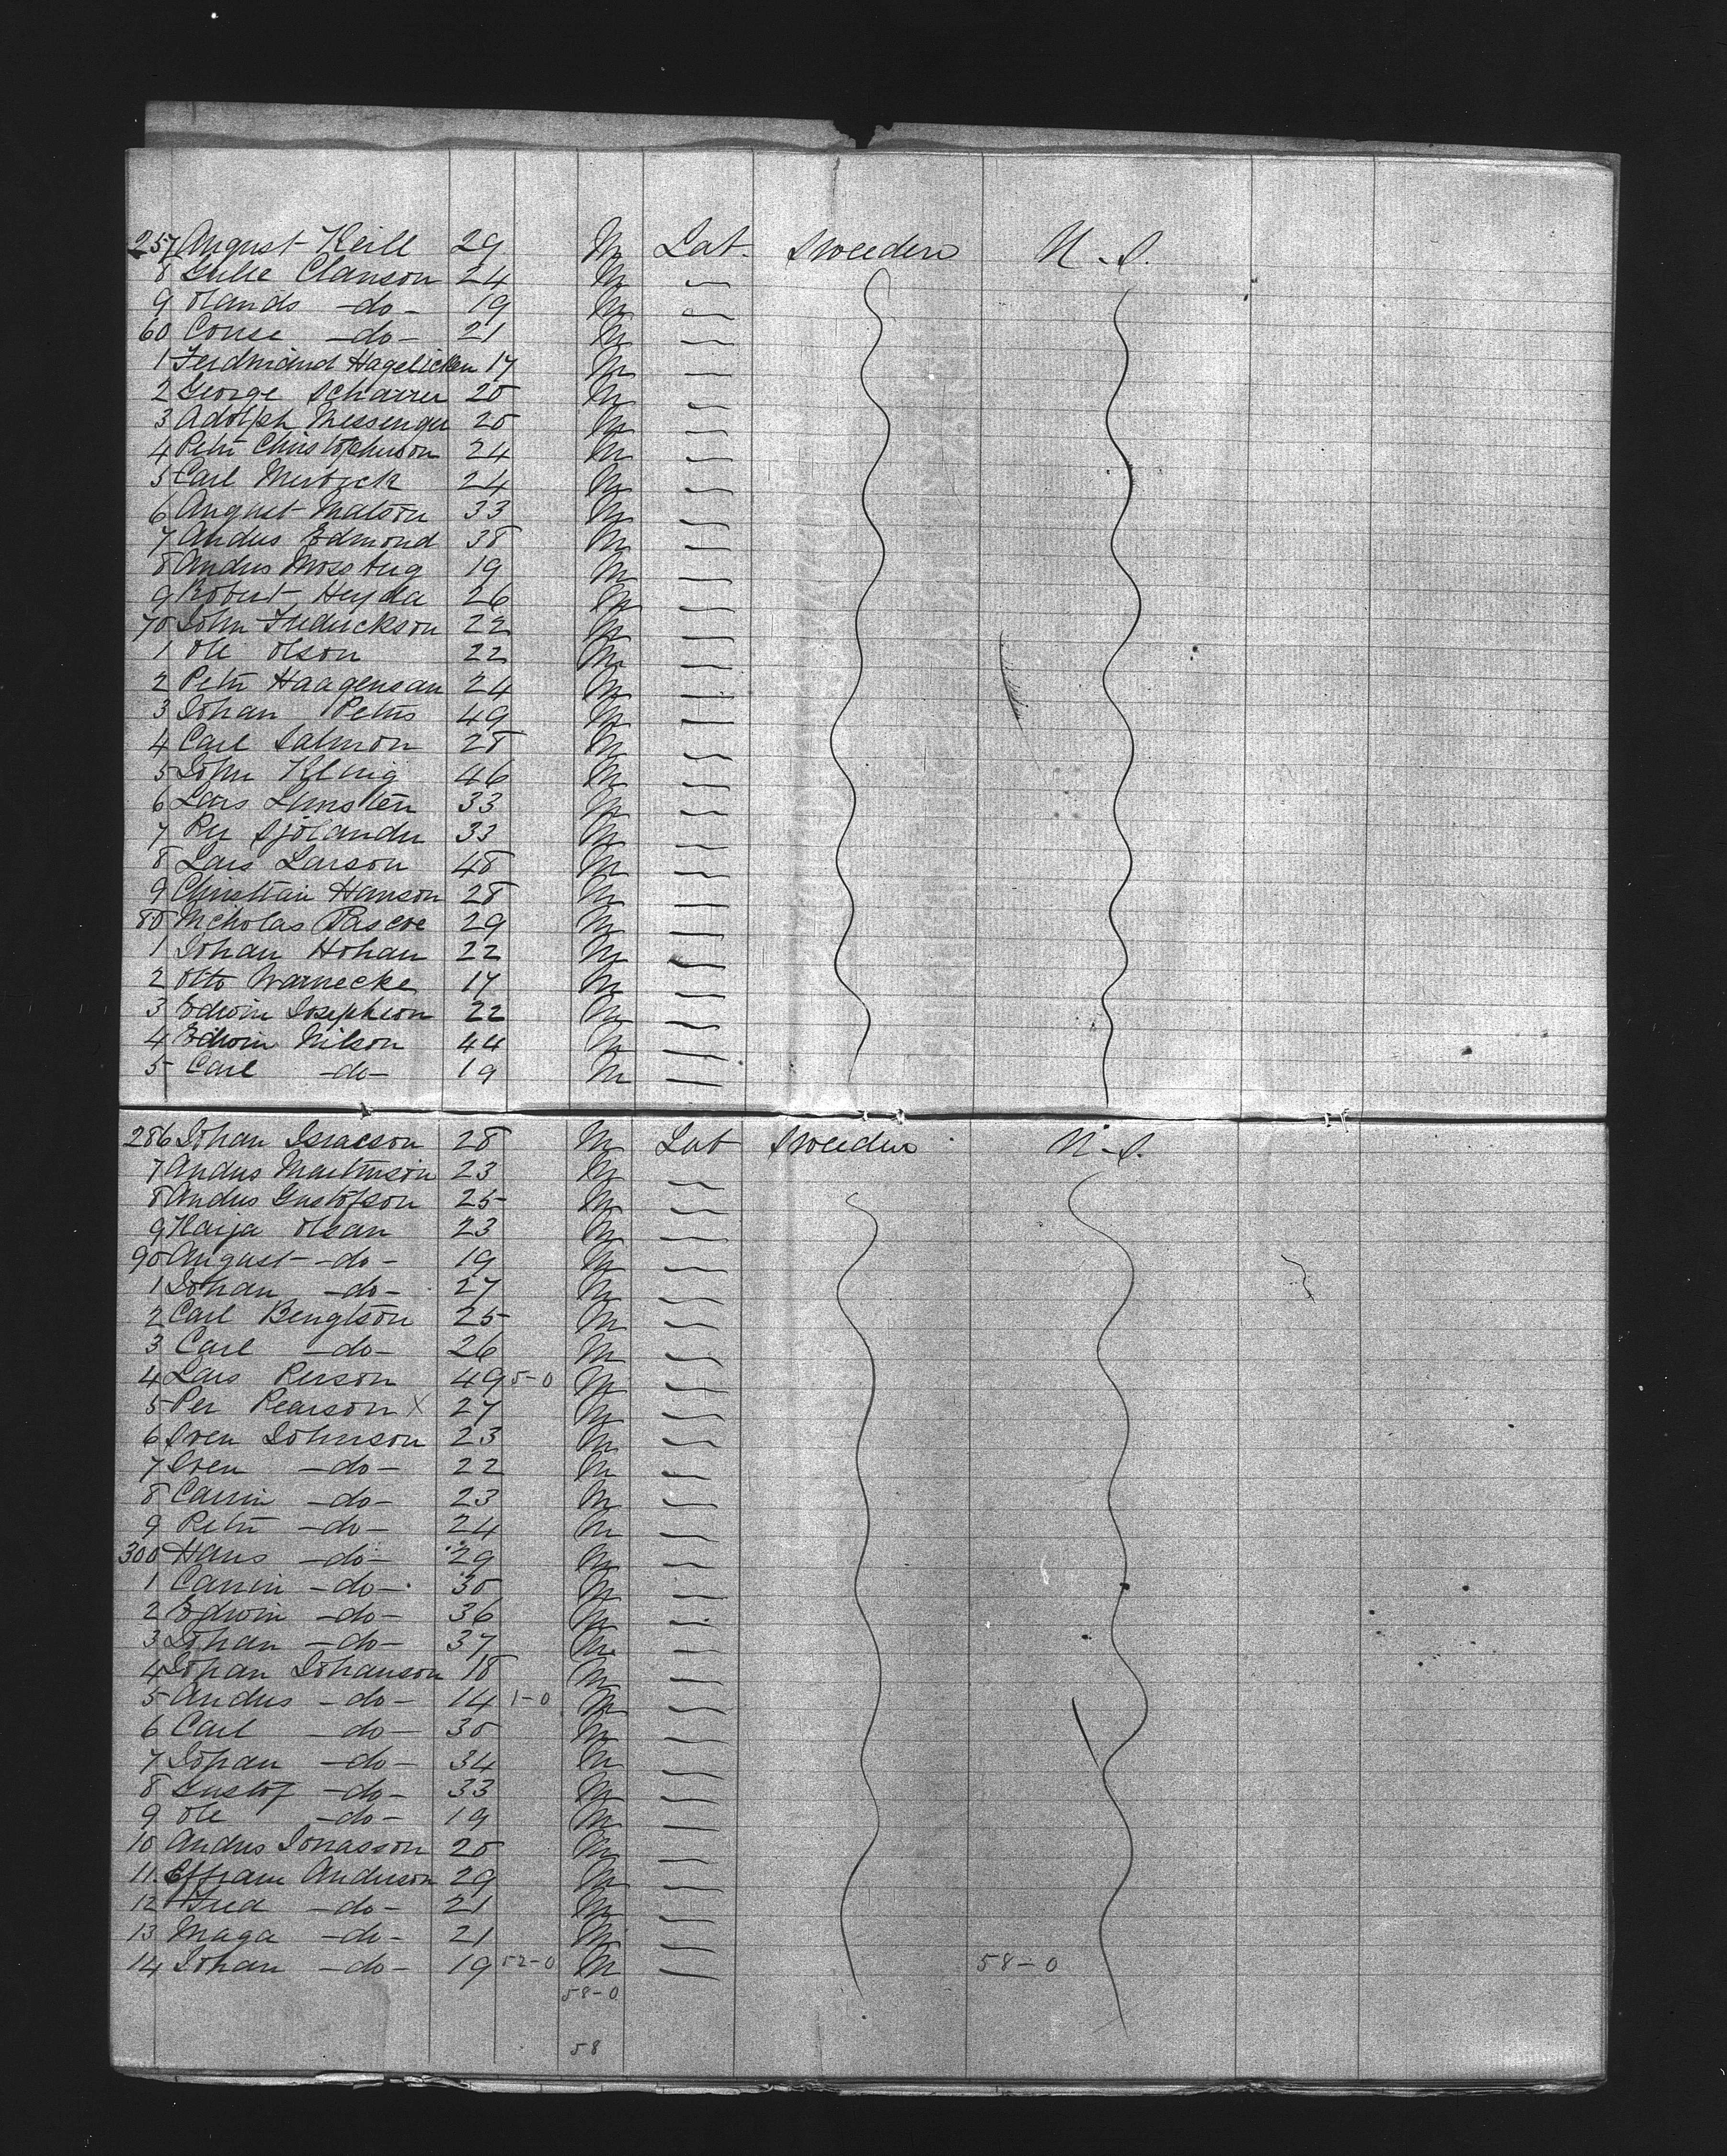 257 August Keill 29 M Lab. Sweeden U.S.
8 Clauson 24 M
9 -do- 19 M
60 -do- 21 M
1 Ferdinand Hagelicken 17 M
2 George Scharrer 20 M
3 Adolph Messenger 20 M
4 Petr Christopherson 24 M
5 Carl 24 M
6 August Matson 33 M
7 Andus Edmond 38 M
8 Andus Mossberg 19 M
9 Robert Heyda 26 M
70 John Frederickson 22 M
1 Ole Olson 22 M
2 Petr Haagensan 24 M
3 Johan Petrs 49 M
4 Carl Salmon 28 M
5 John 46 M
6 Lars 33 M
7 Per Sjolander 33 M
8 Lars Larson 48 M
9 Christian Hanson 28 M
80 Nicholas Pascoe 29 M
1 Johan Hohan 22 M
2 Otto Warnecke 17 M
3 Edwin Josephson 22 M
4 Edwin Nilson 44 M
5 Carl -do- 19 M
286 Johan Isracson 28 M Lab Sweeden U.S.
7 Andus Martinson 23 M
8 Andus Gustofson 25 M
9 Olson 23 M
90 August -do- 19 M
1 Johan -do- 27 M
2 Carl Bengtson 25 M
3 Carl -do- 26 M
4 Lars Person 49 5-0 M
5 Per Pearson X 27 M
6 Sven Johnson 23 M
7 Sven -do- 22 M
8 Carrin -do- 23 M
9 Petr -do- 24 M
300 Hans -do- 29 M
1 Carrin -do- 30 M
2 Edwin -do- 36 M
3 Johan -do- 37 M
4 Johan Johanson 18 M
5 Andus -do- 14 1-0 M
6 Carl -do- 30 M
7 Johan -do- 34 M
8 Gustof -do- 33 M
9 Ole -do- 19 M
10 Andus Jonasson 20 M
11 Effraim Anderson 29 M
12 Fred -do- 21 M
13 Maga -do- 21 M
14 Johan -do- 19 52-0 M 58-0
58-0
58